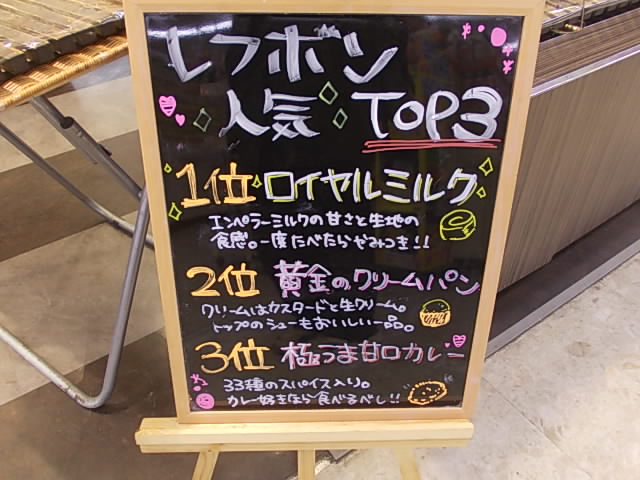 レフボン
人気 TOP3
1位 ロイヤルミルク
エンペラーミルクの甘さと生地の
食感。一度たべたらやみつき!!
2位 黄金のクリームパン
クリームはカスタードと生クリーム。
トップのシューもおいしい一品。
3位 極うま甘口カレー
33種のスパイス入り。
カレー好きなら食べるべし!!